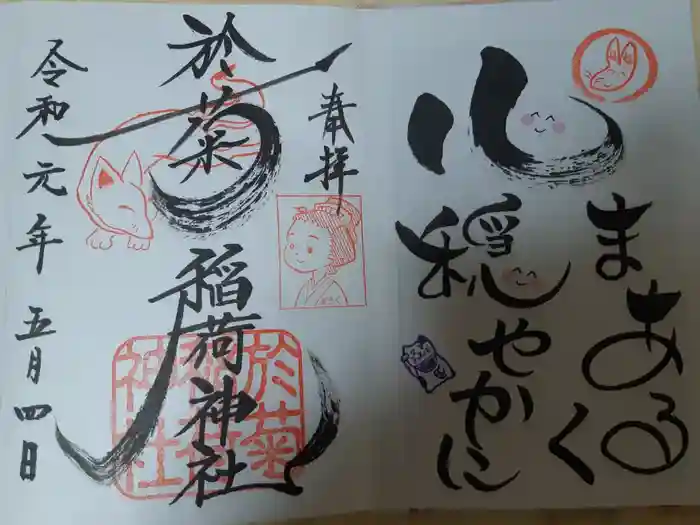 心
まあるく
穏やかに
奉拝
於菊稲荷神社
令和元年五月四日
於菊
稲荷
神社